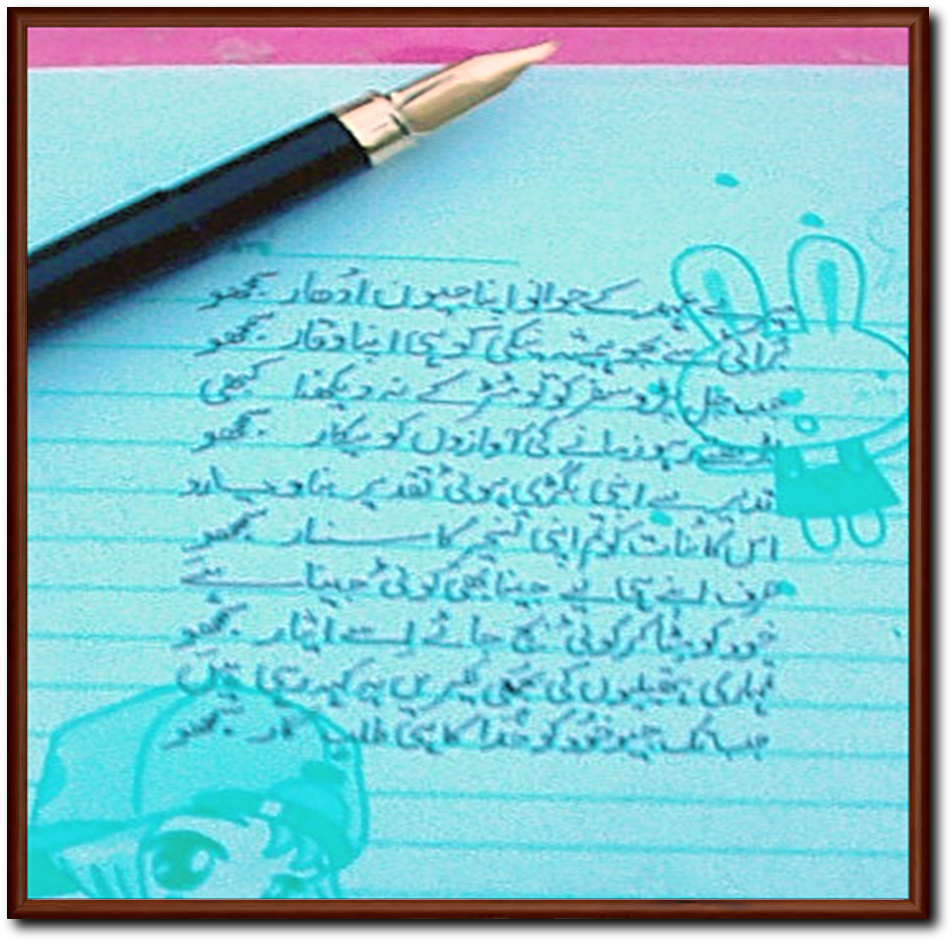 کے جوانی اپنا جیون اُدھار سمجھو
بُرائی سے بچو ہمیشہ نیکی کو ہی اپنا وقار سمجھو
جب چل پڑو سفر کو تو مُڑ کے نہ دیکھنا کبھی
زمانے کی آوازوں کو بیکار سمجھو
تدبیر سے اپنی بگڑی ہوئی تقدیر بنا دو
اس کائنات کو تم اپنی کا سنسار سمجھو
صرف اپنے ہی لیے جینا بھی کوئی جینا ہے
خود کو مٹا کر کوئی بچ جائے اسے ایثار سمجھو
تمہاری ہتھیلیوں کی بھی لکیریں یہ کہہ رہی ہیں
جب تک جیو خود کو خُدا کا ہی طلب گار سمجھو